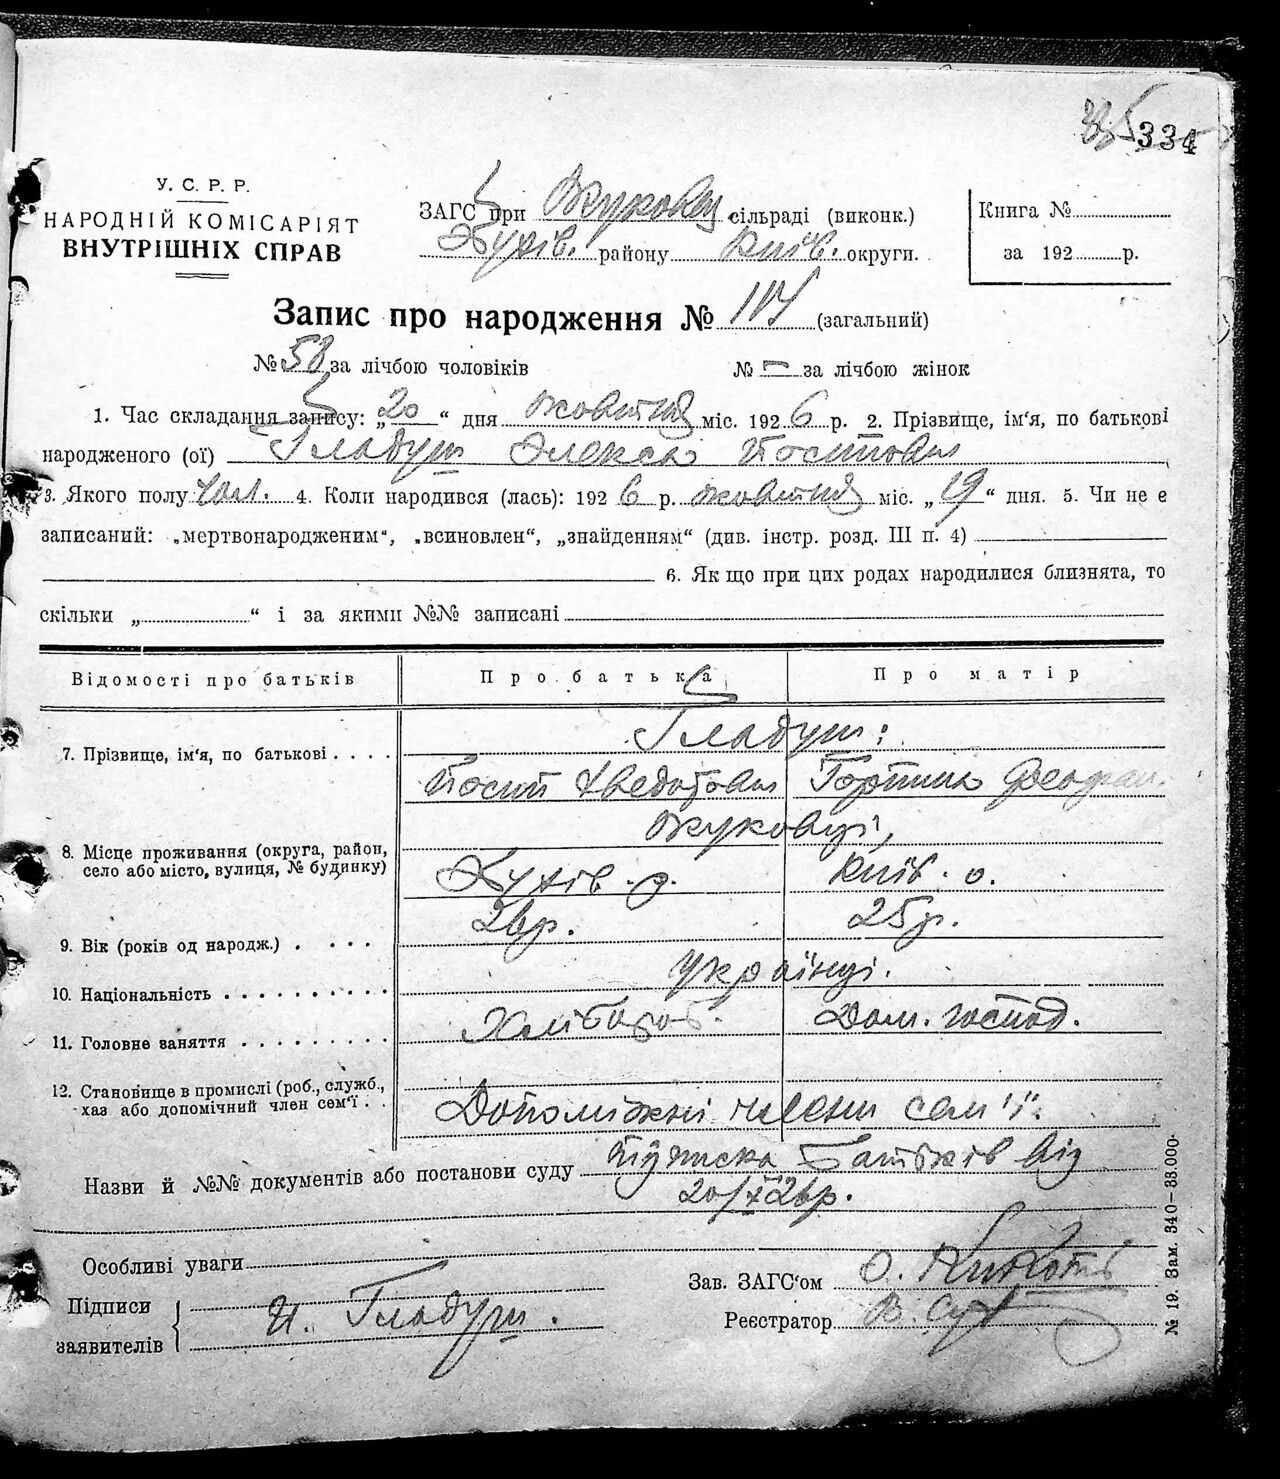 335 334
У. С. Р. Р.
НАРОДНІЙ КОМІСАРІЯТ
ВНУТРІШНІХ СПРАВ
ЗАГС при Жуковец. сільраді (виконк.)
Бухів. району Київ. округи.
Книга №
за 192 р.
Запис про народження № 114 (загальний)
№ 58 за лічбою чоловіків № — за лічбою жінок
1. Час складання запису: „20“ дня жовтня міс. 1926 р. 2. Прізвище, ім'я, по батькові
народженого (ої) Гладуш Олекса Йосипович
3. Якого полу чол. 4. Коли народився (лась): 1926 р. жовтня міс. „19“ дня. 5. Чи не є
записаний: „мертвонародженим“, „всиновлен“, „знайденням“ (див. інстр. розд. III п. 4)
6. Як що при цих родах народилися близнята, то
скільки „ “ і за якими №№ записані
Відомості про батьків Про батька Про матір
Гладуш:
7. Прізвище, ім'я, по батькові
Йосип Хведотович Горпина
Жуковці,
8. Місце проживання (округа, район,
село або місто, вулиця, № будинку)
Бухів. р. Київ. о.
9. Вік (років од народж.) 26р. 25р.
10. Національність Українці.
11. Головне заняття Хлібороб. Дом. господ.
12. Становище в промислі (роб., служб.,
хаз або допомічний член сем'ї
Допоміжні члени сем'ї.
Назви й №№ документів або постанови суду Підписка батьків від
20/X 26р.
Особливі уваги
Зав. ЗАГС'ом О.
Підписи
заявителів
И. Гладуш.
Реєстратор В.
№ 19. Зам. 340—38.000